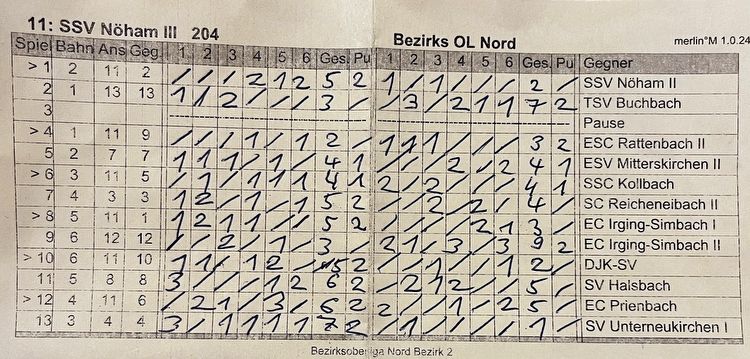 11: SSV Nöham III 204 Bezirks OL Nord merlin°M 1.0.24
Spiel Bahn Ans Geg. 1 2 3 4 5 6 Ges. Pu 1 2 3 4 5 6 Ges. Pu Gegner
> 1 2 11 2 / / / 2 1 2 5 2 1 / 1 / / / 2 / SSV Nöham II
2 1 13 13 1 1 2 / / / 3 / / 3 / 2 1 1 7 2 TSV Buchbach
3 Pause
> 4 1 11 9 / / / 1 / 1 2 / 1 1 1 / / / 3 2 ESC Rattenbach II
5 2 7 7 1 1 1 / 1 / 4 1 / / / 2 / 2 4 1 ESV Mitterskirchen II
> 6 3 11 5 / 1 / 1 1 1 4 1 2 / 2 / / / 4 1 SSC Kollbach
7 4 3 3 1 2 / 1 / 1 5 2 / / 2 / 2 / 4 / SC Reicheneibach II
> 8 5 11 1 1 2 1 1 / / 5 2 / / / / 2 1 3 / EC Irging-Simbach I
9 6 12 12 / / 2 / 1 / 3 / 2 1 / 3 / 3 9 2 EC Irging-Simbach II
> 10 6 11 10 1 1 / 1 2 / 5 2 / / 1 / / 1 2 / DJK-SV
11 5 8 8 3 / / / 1 2 6 2 / / 1 2 2 / 5 / SV Halsbach
> 12 4 11 6 / 2 1 / 3 / 6 2 2 / / 1 / 2 5 / EC Prienbach
13 3 4 4 3 / 1 1 1 1 7 2 / 1 / / / / 1 / SV Unterneukirchen I
Bezirksoberliga Nord Bezirk 2